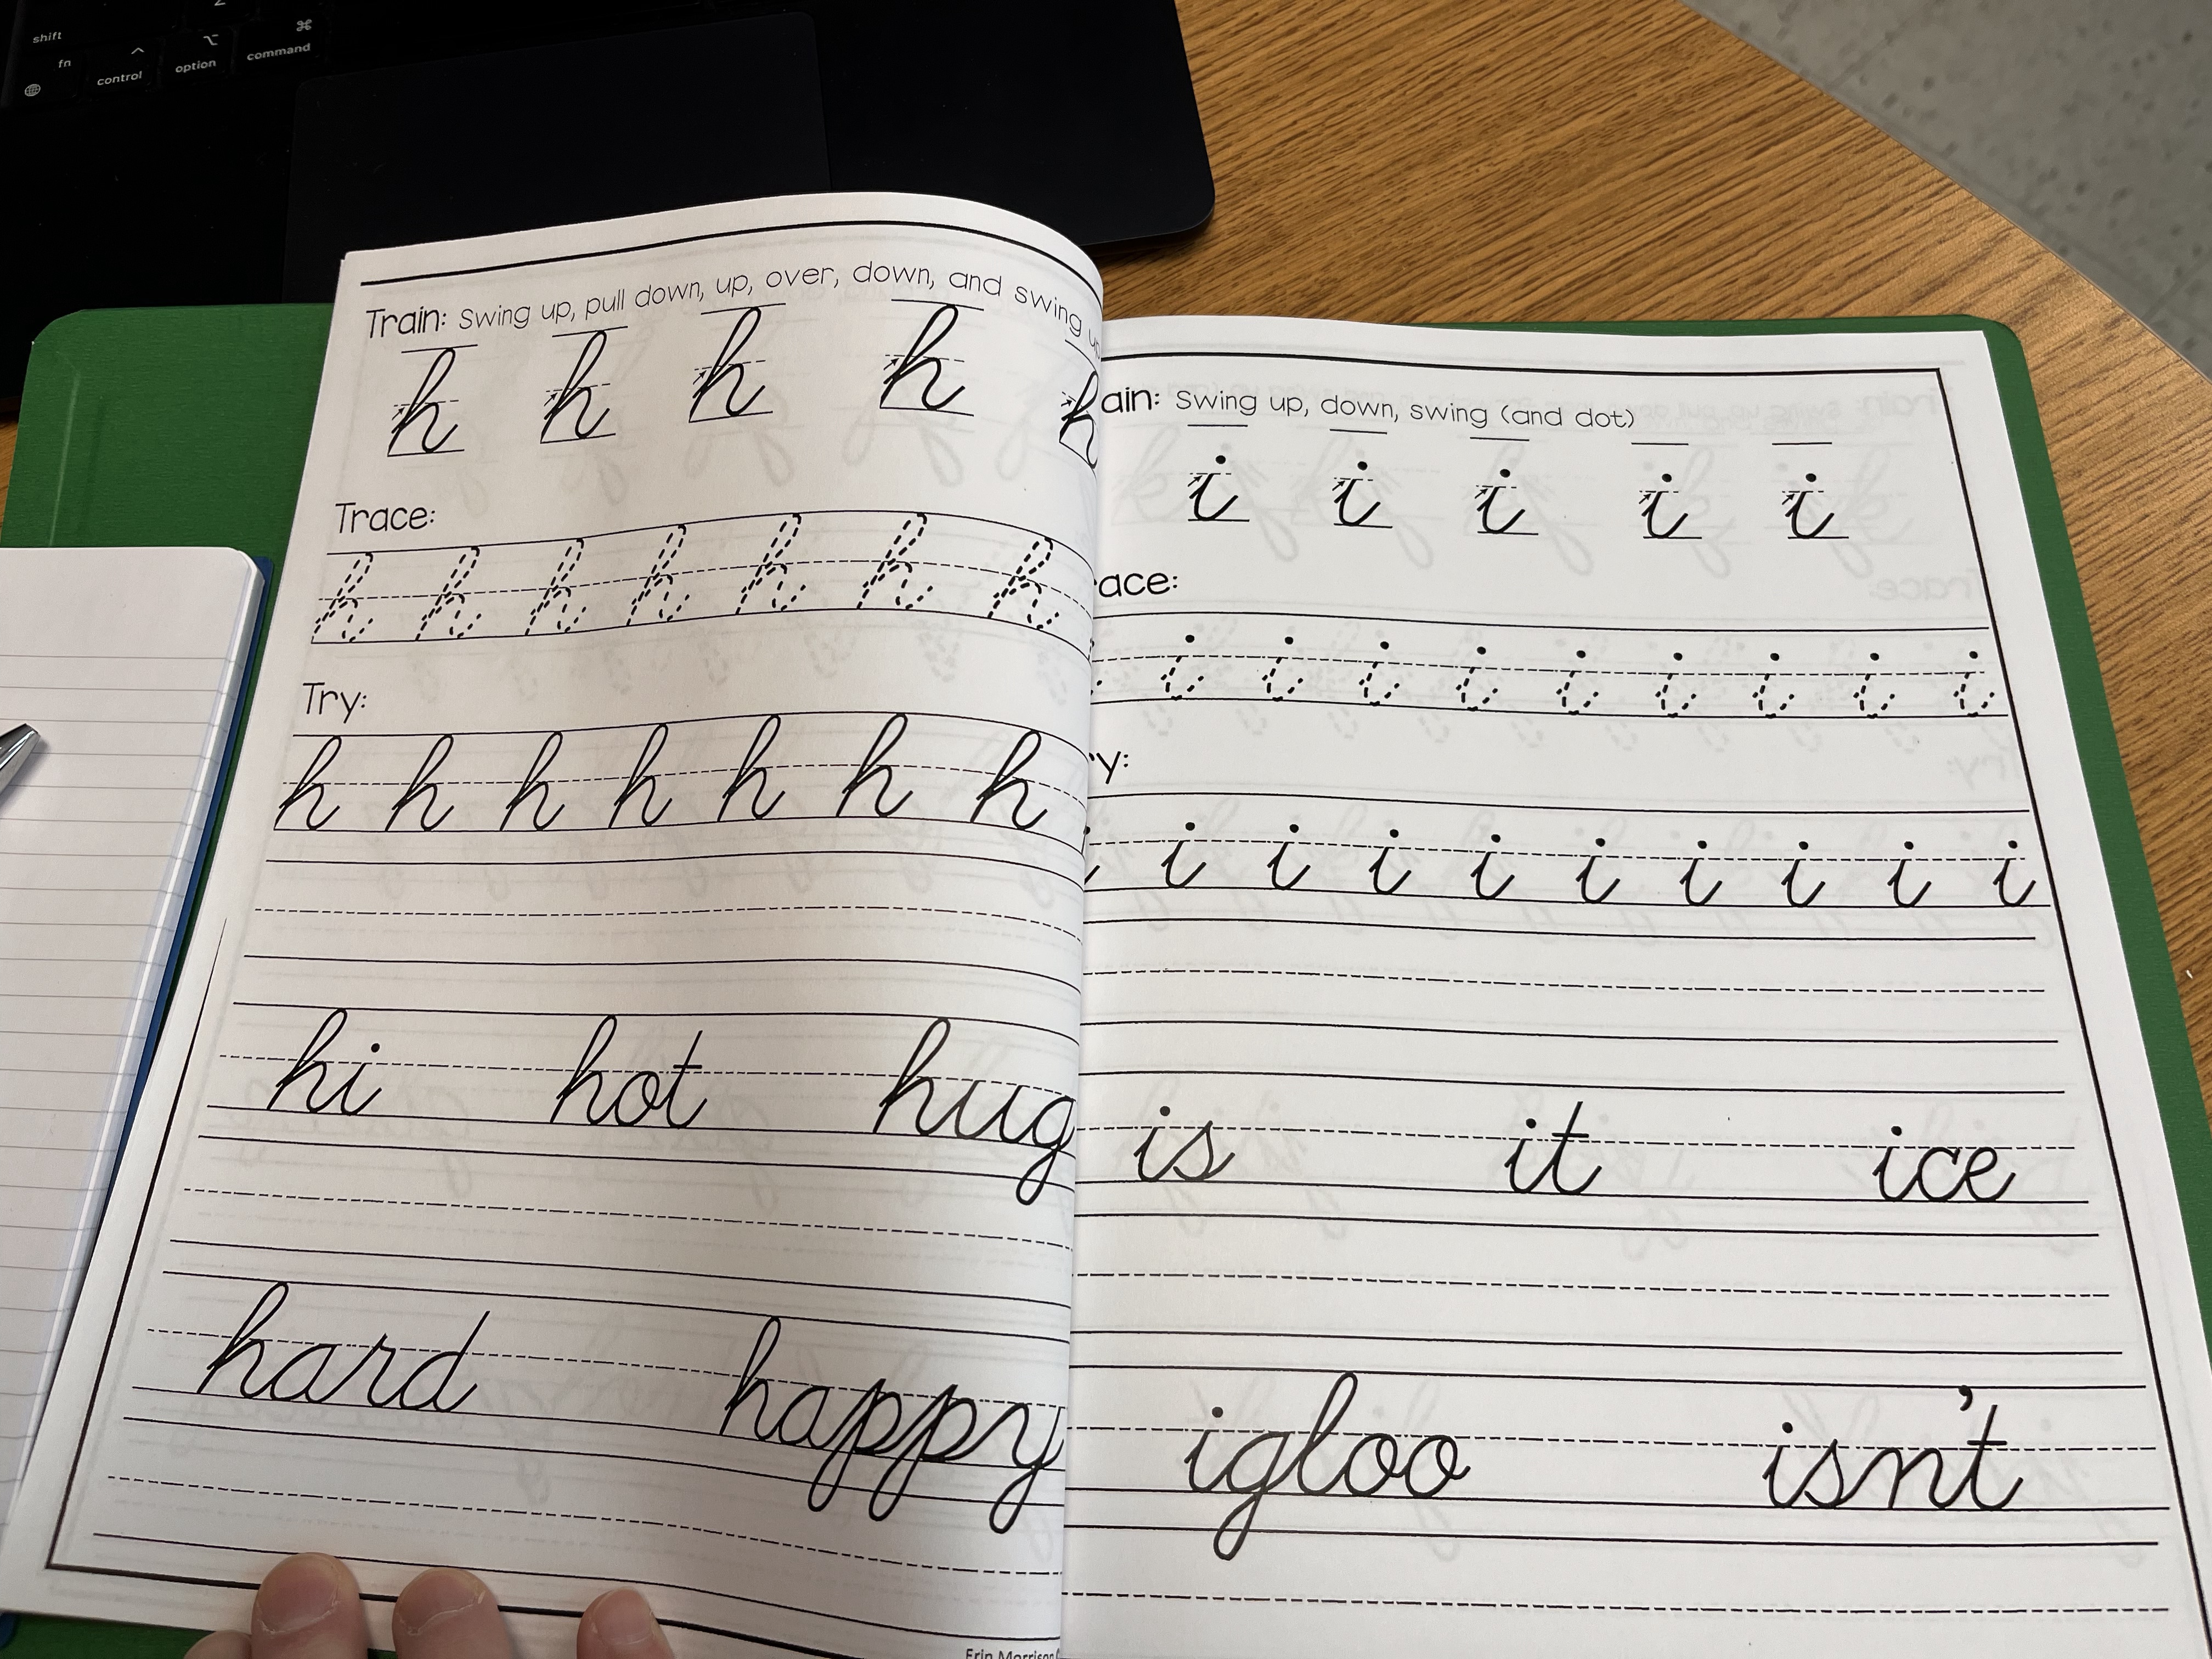 shift
fn
control
option
command
Train: Swing up, pull down, up, over, down, and swing
h h h h h
Trace:
h h h h h h h
Try:
h h h h h h h
hi hot hug
hard happy
Erin Morrison
ain: Swing up, down, swing (and dot)
i i i i i
ace:
i i i i i i i i i
y:
i i i i i i i i i
is it ice
igloo isn't